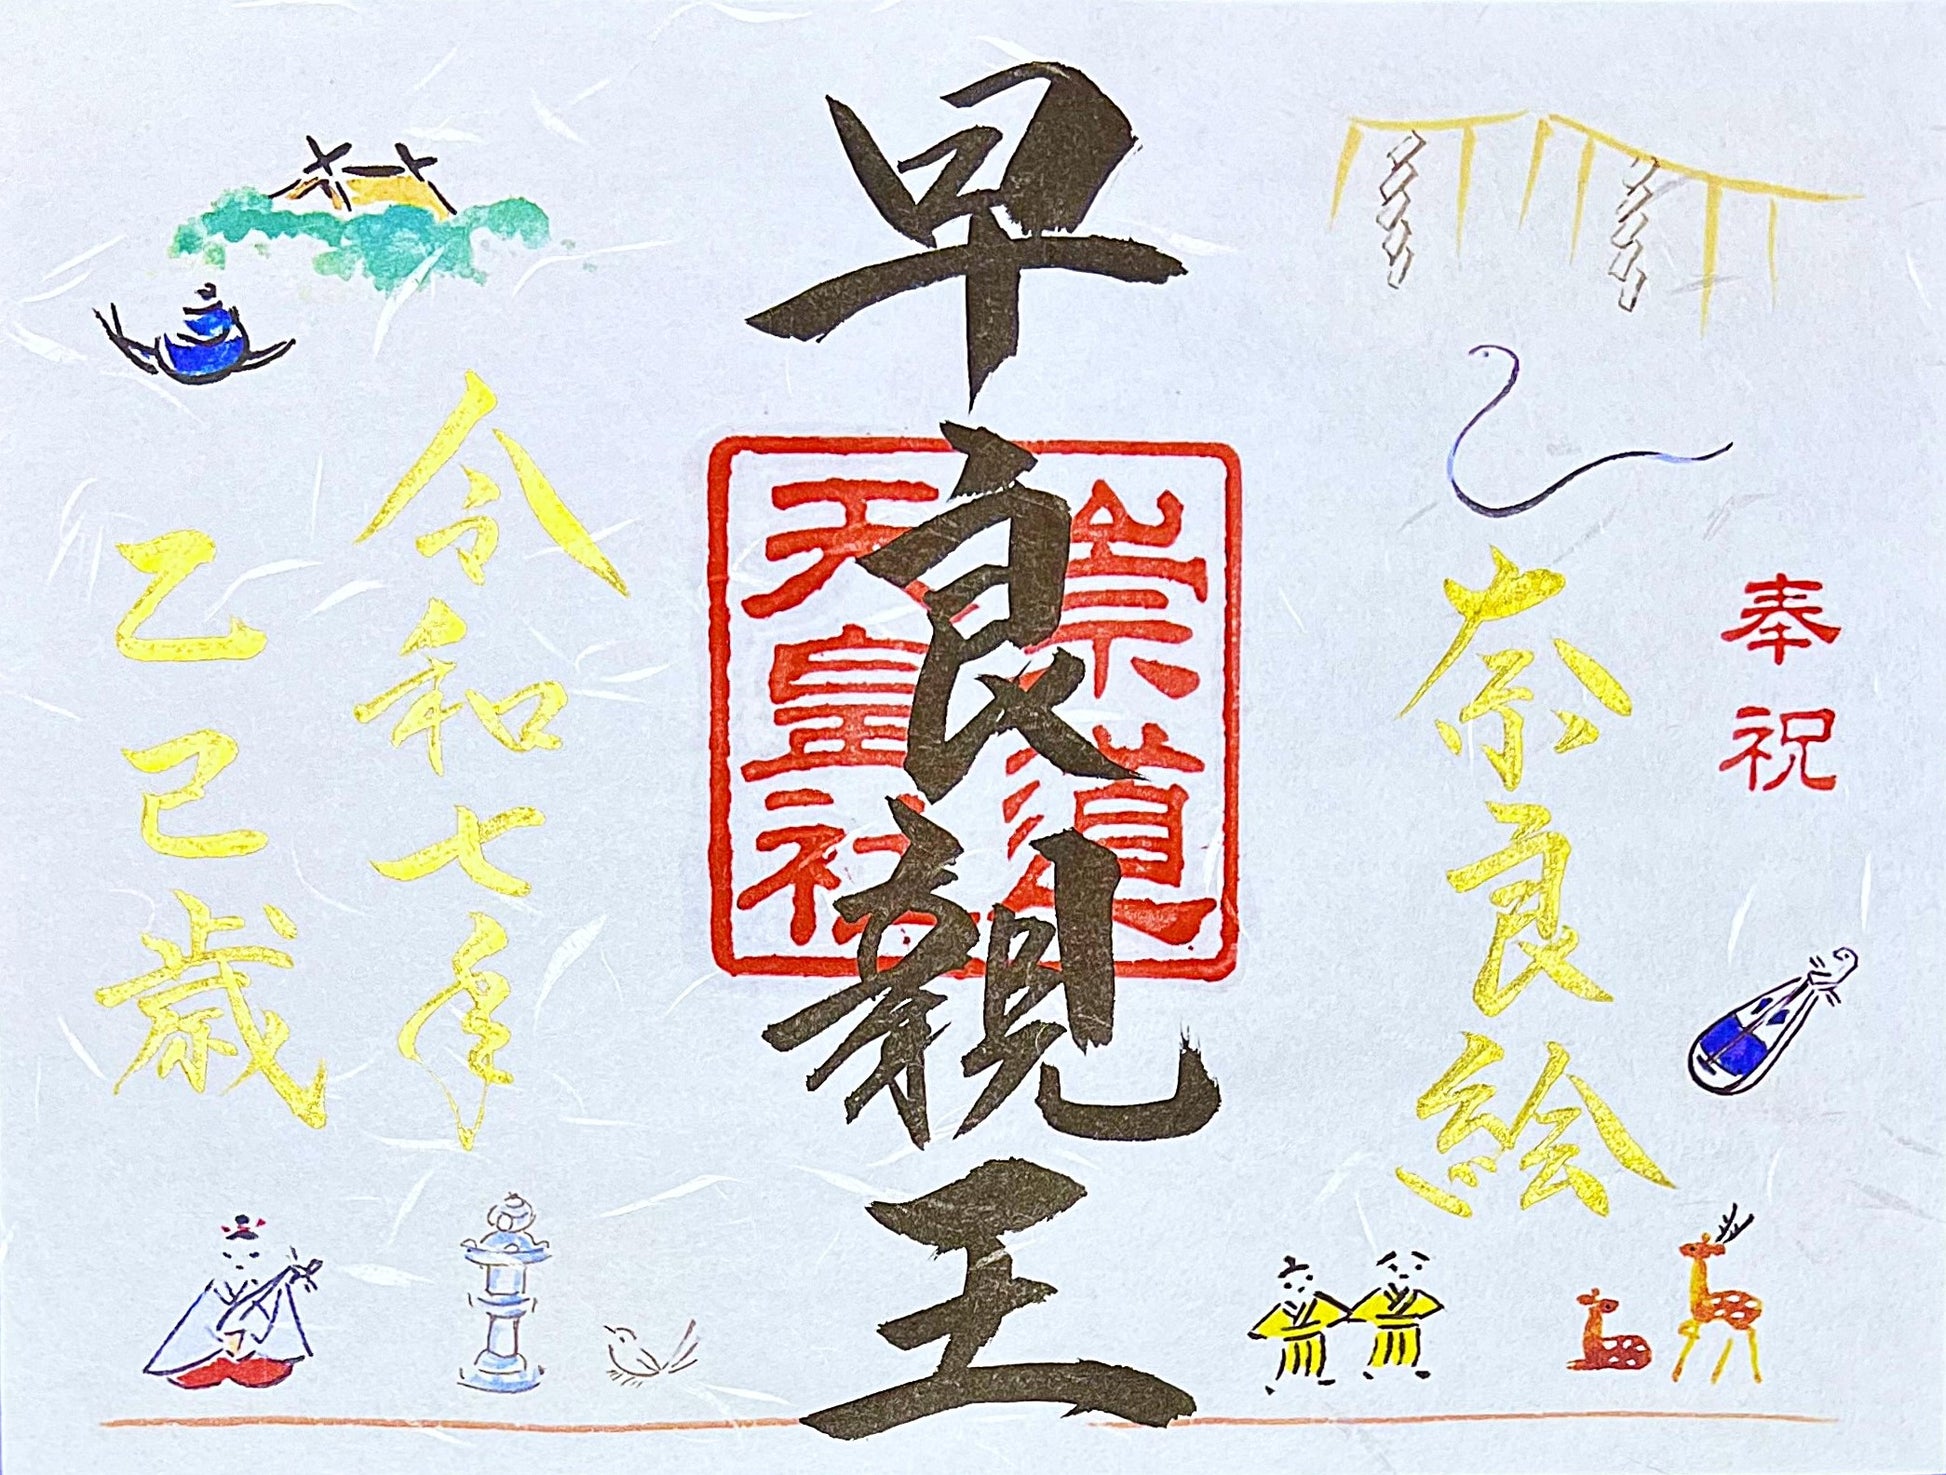 奉祝
奈良絵
早良親王
崇道
天皇社
令和七年
乙巳歳